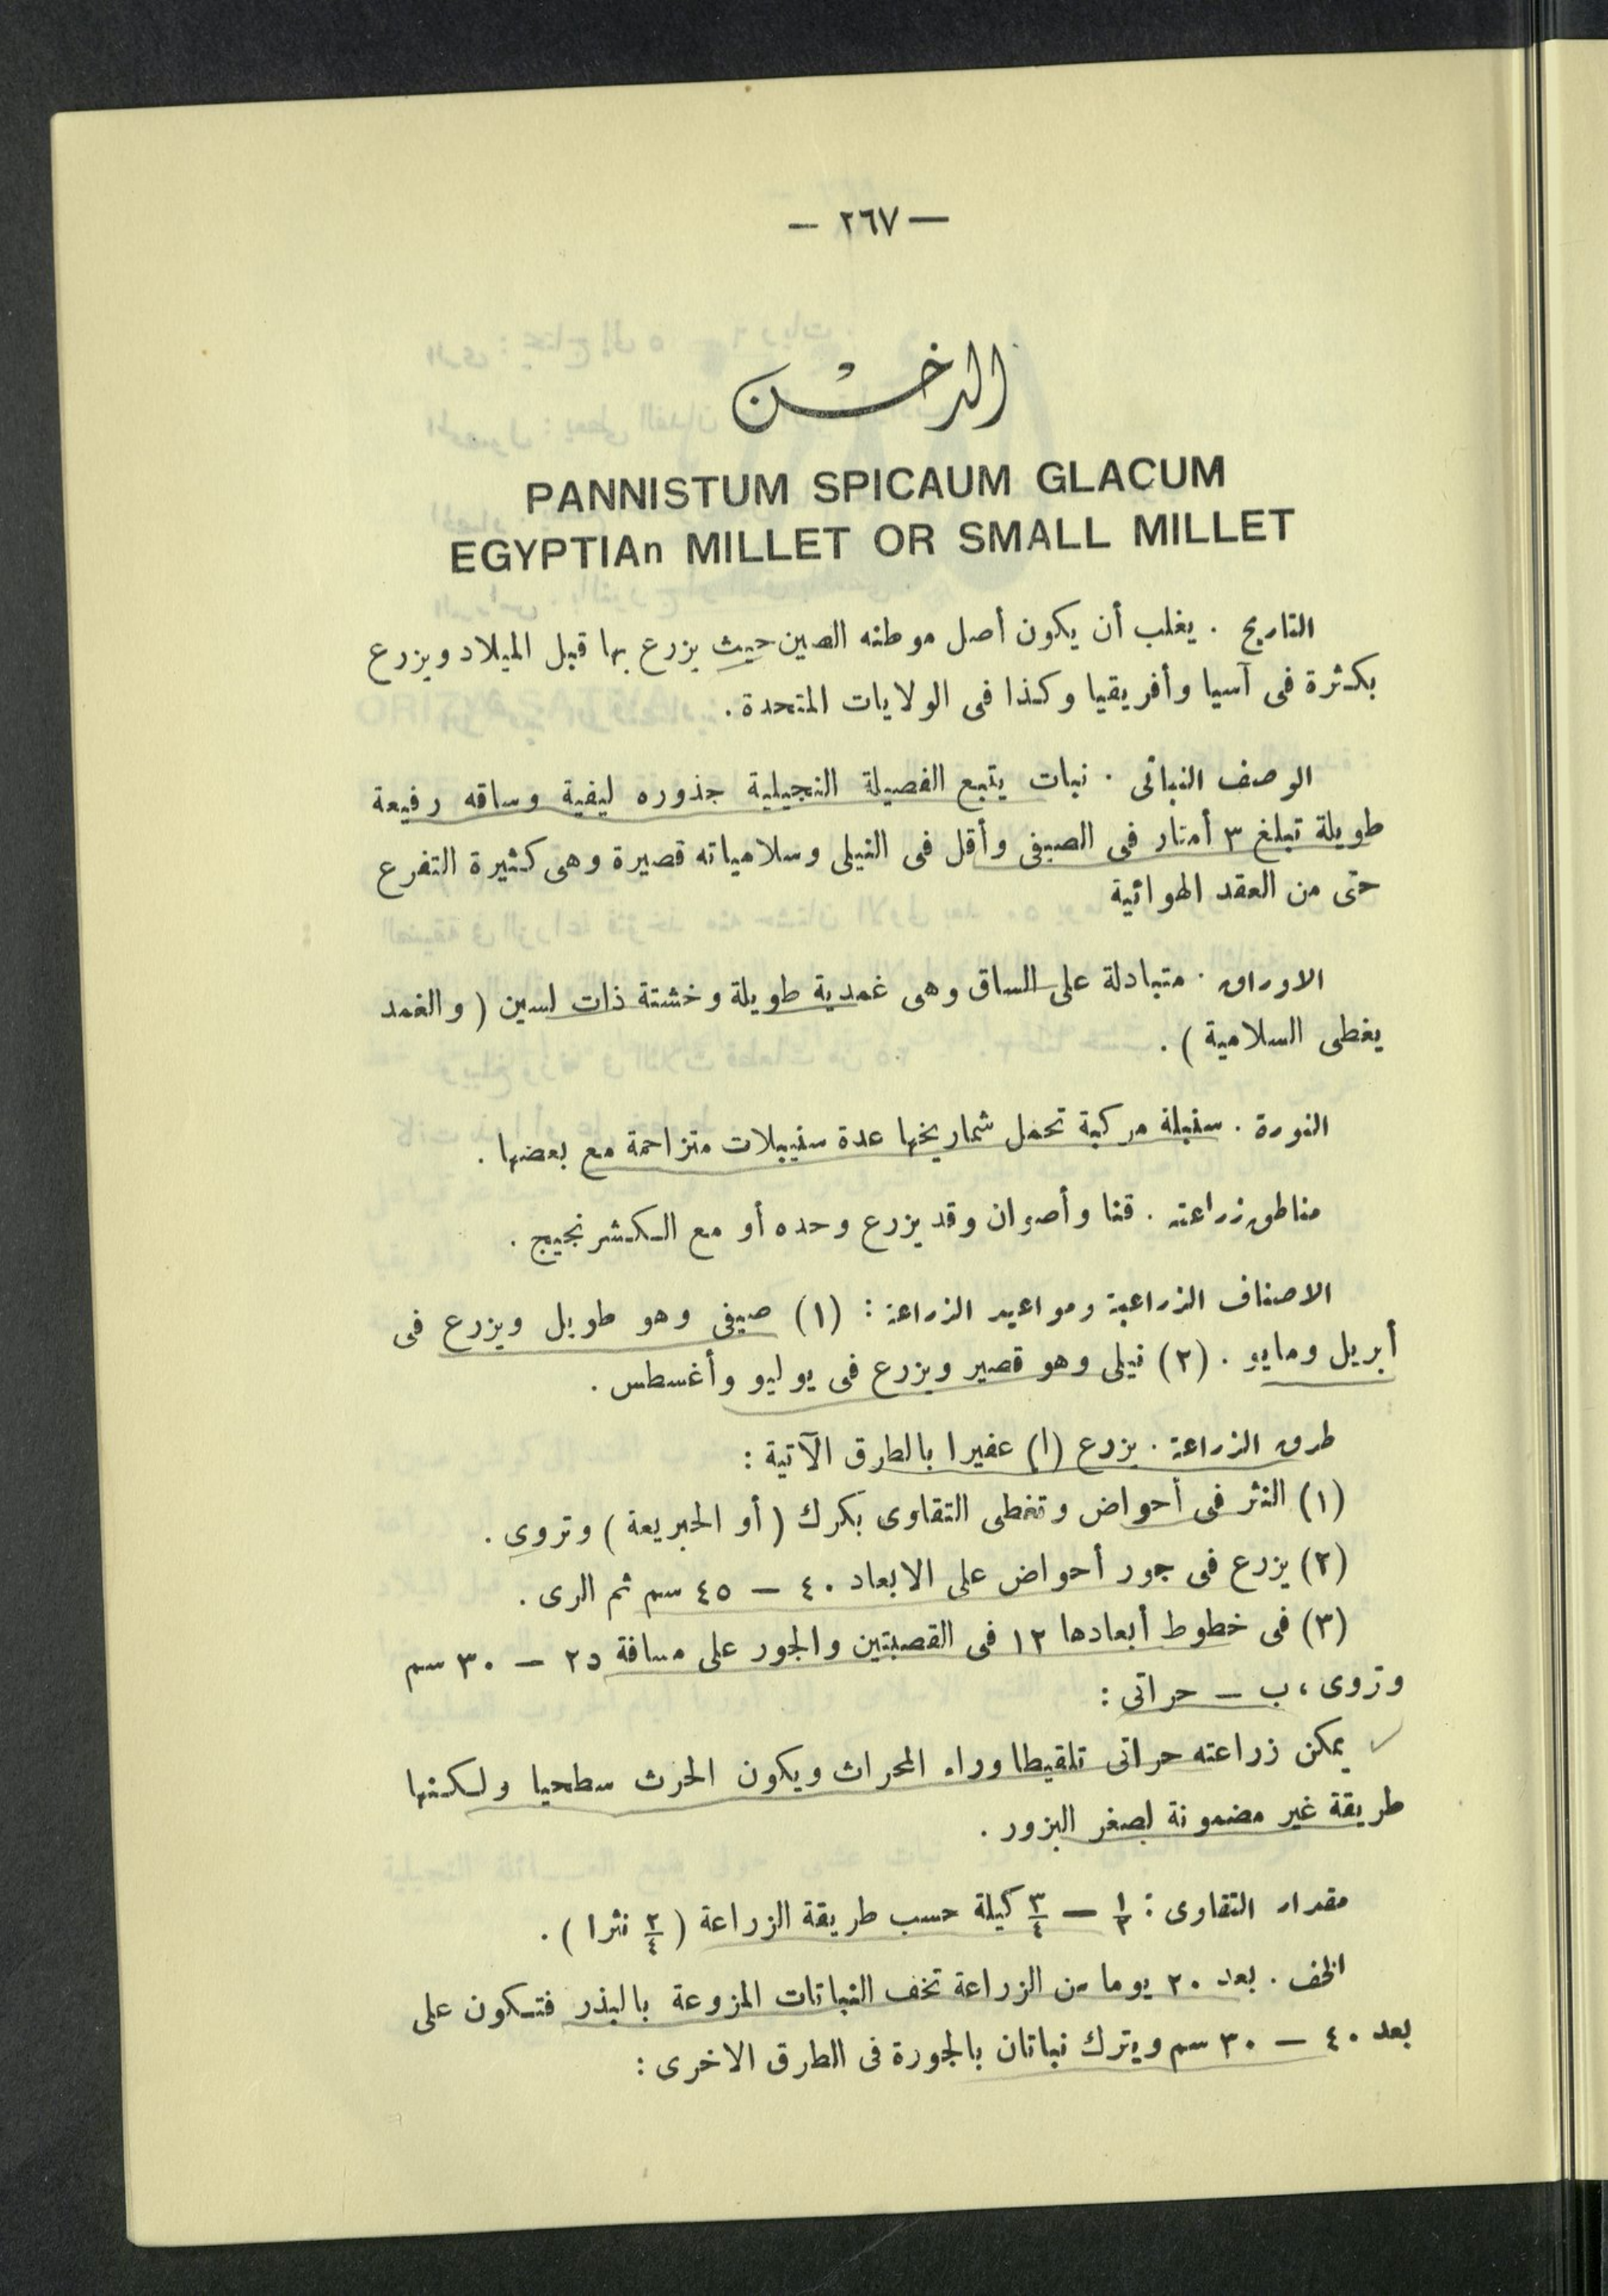 — ٢٦٧ —
الدخـــن
PANNISTUM SPICAUM GLACUM
EGYPTIAn MILLET OR SMALL MILLET
التاريخ . يغلب أن يكون أصل موطنه الصين حيث يزرع بها قبل الميلاد ويزرع
بكثرة فى آسيا وأفريقيا وكذا فى الولايات المتحدة .
الوصف النباتى . نبات يتبع الفصيلة النجيلية جذوره ليفية وساقه رفيعة
طويلة تبلغ ٣ أمتار فى الصيفى وأقل فى النيلى وسلامياته قصيرة وهى كثيرة التفرع
حتى من العقد الهوائية
الاوراق . متبادلة على الساق وهى غمدية طويلة وخشنة ذات لسين ( والغمد
يغطى السلامية ) .
النورة . سنبلة مركبة تحمل شماريخها عدة سنيبلات متزاحمة مع بعضها .
مناطق زراعته . قنا وأصوان وقد يزرع وحده أو مع الكشرنجيج .
الاصناف الزراعية ومواعيد الزراعة : (١) صيفى وهو طويل ويزرع فى
أبريل ومايو . (٢) نيلى وهو قصير ويزرع فى يوليو وأغسطس .
طرق الزراعة . يزرع (ا) عفيرا بالطرق الآتية :
(١) النثر فى أحواض وتغطى التقاوى بكرك ( أو الجربعة ) وتروى .
(٢) يزرع فى جور أحواض على الابعاد ٤٠ — ٤٥ سم ثم الرى .
(٣) فى خطوط أبعادها ١٢ فى القصبتين والجور على مسافة ٢٥ — ٣٠ سم
وتروى ، ب — حراتى :
يمكن زراعته حراتى تلقيطا وراء المحراث ويكون الحرث سطحيا ولكنها
طريقة غير مضمونة لصغر البزور .
مقدار التقاوى : ١/٣ — ٣/٤ كيلة حسب طريقة الزراعة ( ٢/٤ نثرا ) .
الخف . بعد ٢٠ يوما من الزراعة تخف النباتات المزوعة بالبذر فتكون على
بعد ٤٠ — ٣٠ سم ويترك نباتان بالجورة فى الطرق الاخرى :